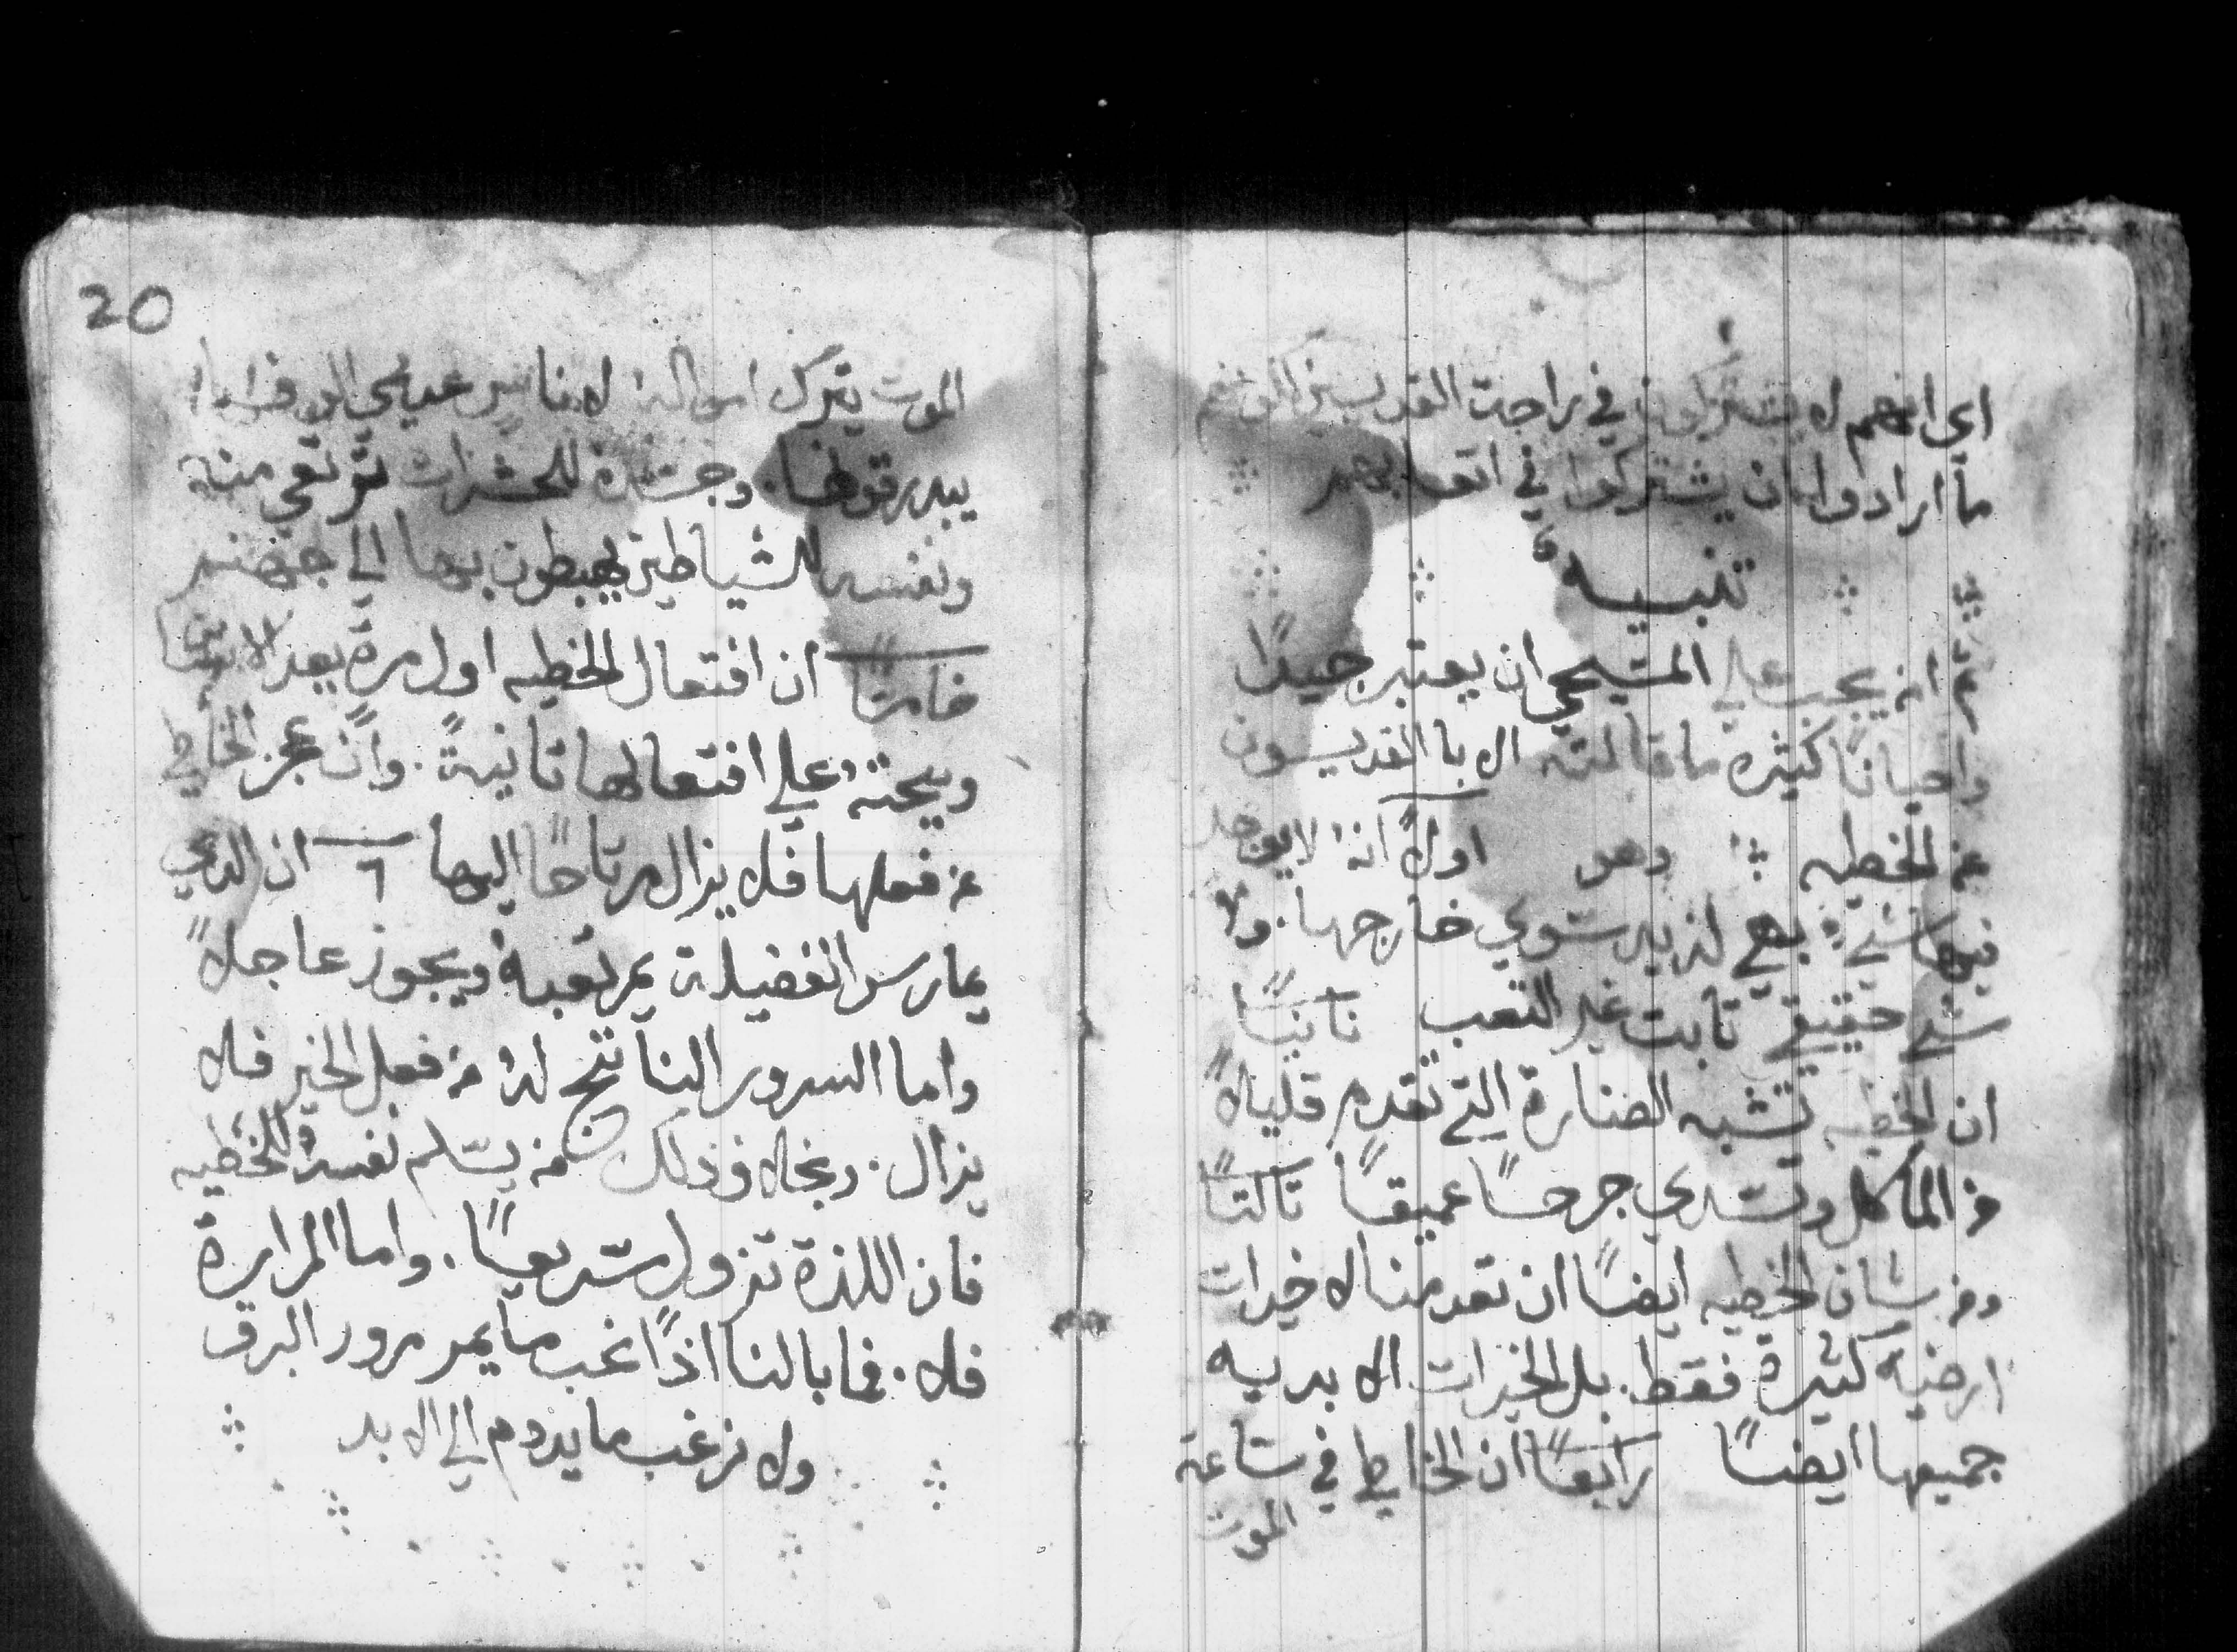 اي انهم لا يشتركون في راحة القديسين لانهم
ما ارادوا ان يشتركوا في اتعابهم
تنبيه
ثم انه يجب علي المسيحي ان يعتبر جيدًا
واحيانًا كثيرة ما قالته الابا القديسون
عن الخطيه وهو اولاً انهُ لا يوجد
فيها شيءٌ بهي لذيد سوي خارجها. ولا
شي حقيقي تابت غير التعب تانيًا
ان الخطيه تشبه الصنارة التي تقدم قليلاً
من الماكل وتسدي جرحًا عميقًا تالتًا
ومن شان الخطيه ايضًا ان تعدمنا لا خيرات
ارضيه كثيرة فقط. بل الخيرات الابديه
جميعها ايضًا رابعًا ان الخاطي في ساعة
الموت
20
الموت يترك امواله لاناس
يبدرقونها. وجسده للحشرات ترتعي منه
ونفسه للشياطين يهبطون بها الي جهنم
خامسًا ان افتعال الخطيه اول مرةً بعد
ويحته علي افتعالها تانيةً. وان عجز الخاطي
عن فعلها فلا يزال مرتاحًا اليها ٦ ان الدي
يمارس الفضيلة يمر تعبهُ ويجوز عاجلاً
واما السرور الناتج لهُ من فعل الخير فلا
يزال. وبخلاف ذلك من يسلم نفسهُ للخطيه
فان اللذة تزول سريعًا. واما المرارة
فلا. فما بالنا اذًا نحب ما يمر مرور البرق
ولا نرغب ما يدوم الي الابد